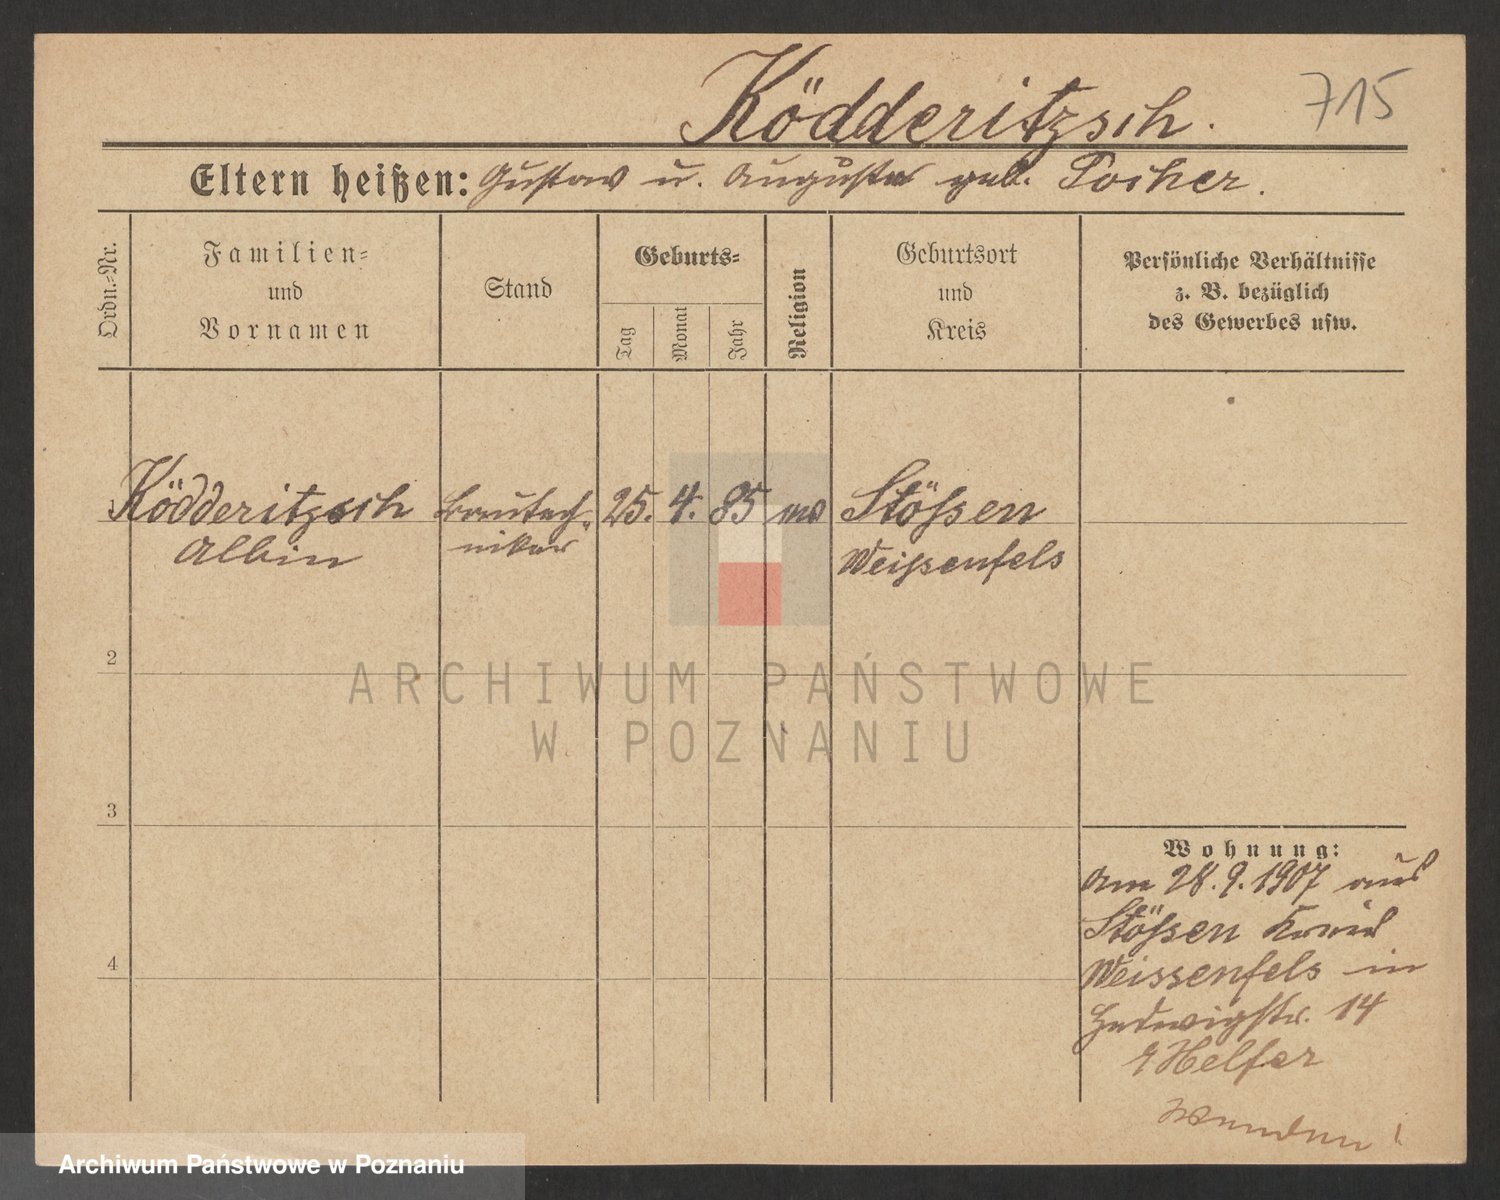 Ködderitzsch.
715
Eltern heißen: Gustav u. Auguste geb. Pocher.
Ordn.=Nr.
Familien=
und
Vornamen
Stand
Geburts=
Tag
Monat
Jahr
Religion
Geburtsort
und
Kreis
Persönliche Verhältnisse
z. B. bezüglich
des Gewerbes usw.
1 Ködderitzsch Bautech= 25. 4. 85 Stößen
Albin niker Weißenfels
2
ARCHIWUM PAŃSTWOWE
W POZNANIU
3
Wohnung:
Am 28.9.1907 aus
Stößen Kreis
Weissenfels in
4
Hedwigstr. 14
Helfer
Wenden!
Archiwum Państwowe w Poznaniu